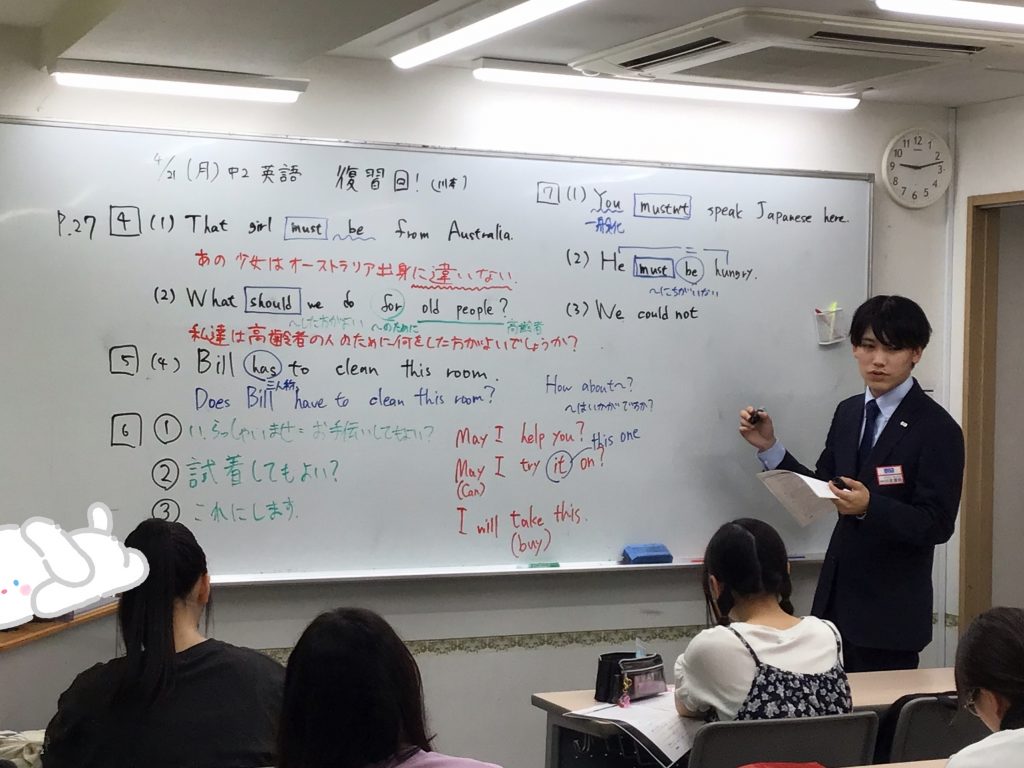 4/21 (月) 中2 英語 復習回! (川本)
P.27 4 (1) That girl must be from Australia.
あの少女はオーストラリア出身に違いない.
(2) What should we do for old people?
〜した方がよい 〜のために 高齢者
私達は高齢者の人のために何をした方がよいでしょうか?
5 (4) Bill has to clean this room.
三人称
Does Bill have to clean this room?
6 ① い、らっしゃいませ= お手伝いしてもよい?
② 試着してもよい?
③ これにします.
How about〜?
〜はいかがですか?
May I help you?
this one
May I try it on?
(Can)
I will take this.
(buy)
7 (1) You mustn't speak Japanese here.
一般化
(2) He must be hungry.
〜にちがいない
(3) We could not
12 1 2 3 4 5 6 7 8 9 10 11